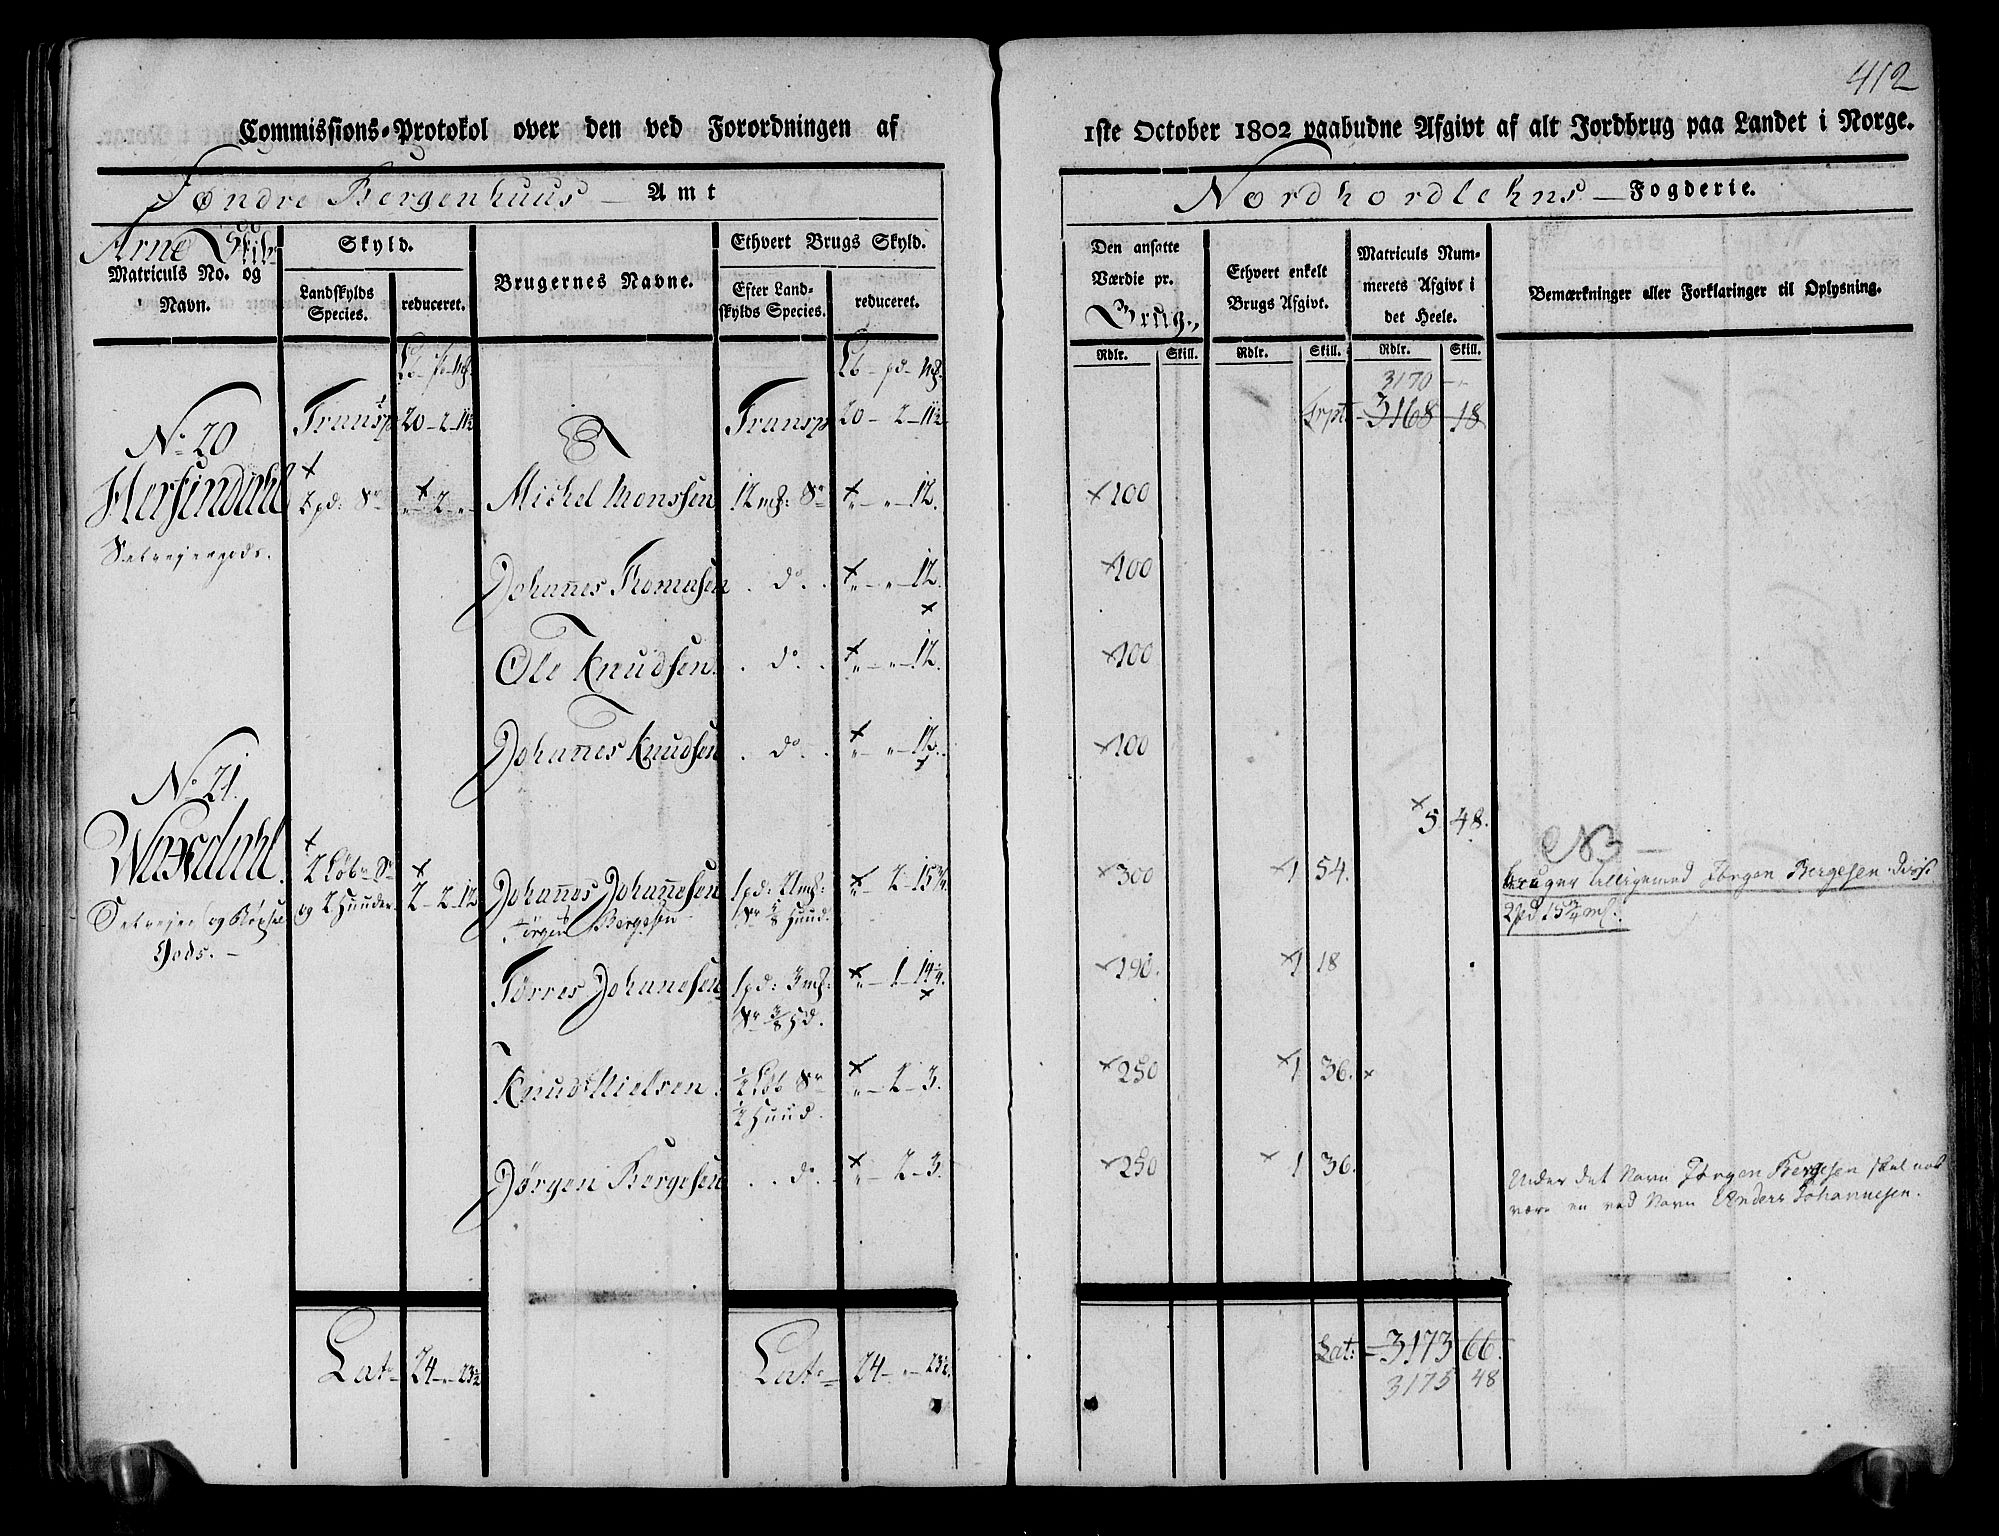 412
Commissions-Protokol over den ved Forordningen af 1ste October 1802 paabudne Afgivt af alt Jordbrug paa Landet i Norge.
Søndre Bergenhuus Amt
Nordhordlehns Fogderie.
Arne Skib:
Matriculs No. og Navn.
Skyld.
Landskylds Species.
reduceret.
Brugernes Navne.
Ethvert Brugs Skyld.
Efter Landskylds Species.
reduceret.
Den ansatte Værdie pr. Brug.
Ethvert enkelt Brugs Afgivt.
Matriculs Nummerets Afgivt i det Heele.
Bemærkninger eller Forklaringer til Oplysning.
Rdlr. Skill. Rdlr. Skill. Rdlr. Skill.
Lb - pd - mk. Lb - pd - mk.
3170 - "
Transp 20 - 2 - 11½ Transp 20 - 2 - 11½ Trpt 3168 - 18
No 20
Hersindahl
Selveiergods.
2 pd: Sr " - 2 - " Michel Monssen 12 mk: Sr " - " - 12. 100
Johannes Thomasen do " - " - 12. 100
Ole Knudsen do " - " - 12. 100
Johannes Knudsen do " - " - 12. 100
No 21.
5 48.
Waxdahl.
Selveier og Bøxel
Gods.
2 Løb Sr
og 2 Huuder
2 - 2 - 12
Johannes Johannesen 1 pd: 21 mk: " - 2 - 15¾. 300 1 54.
Jørgen Bergesen
NB
bruger tilligemed Jørgen Bergesen disse
2 pd 15¾ mk.
Torres Johannesen 1 pd: 3 mk: " - 1 - 14¼. 190. 1 18
Sr ⅜ Hd.
Knud Nielsen ½ Løb Sr " - 2 - 3. 250 1 36.
½ Huud.
Jørgen Bergesen do " - 2 - 3. 250 1 36.
Under det Navn Jørgen Bergesen skal nok
være en ved Navn Anders Johannesen.
Lat 24 - " - 23½ Lat 24 - " - 23½. Lat: 3173 66.
3175 48